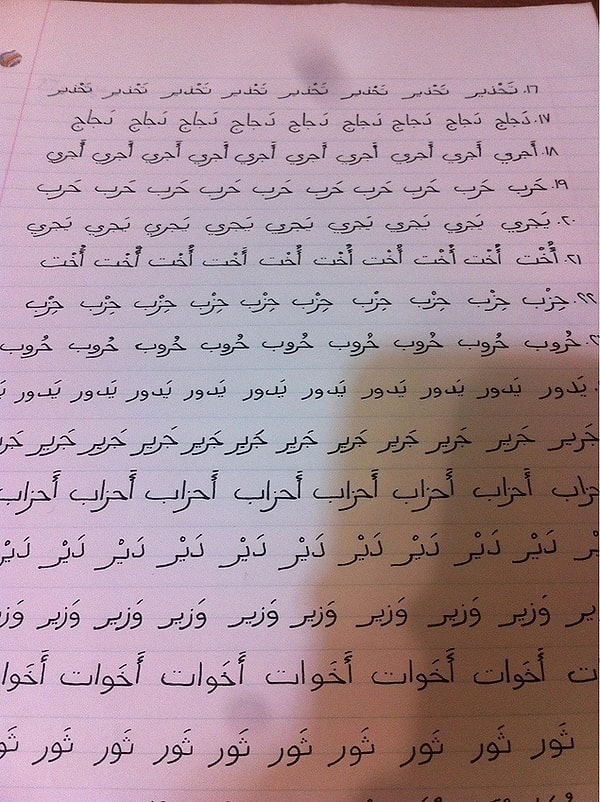 ١٦. تَخْدير تَخْدير تَخْدير تَخْدير تَخْدير تَخْدير تَخْدير تَخْدير
١٧. دَجاج دَجاج دَجاج دَجاج دَجاج دَجاج دَجاج دَجاج دَجاج
١٨. أَجري أَجري أَجري أَجري أَجري أَجري أَجري أَجري أَجري أَجري
١٩. حَرب حَرب حَرب حَرب حَرب حَرب حَرب حَرب حَرب حَرب
٢٠. يَجري يَجري يَجري يَجري يَجري يَجري يَجري يَجري يَجري
٢١. أُخْت أُخْت أُخْت أُخْت أُخْت أُخْت أُخْت أُخْت أُخْت أُخْت
٢٢. حِزْب حِزْب حِزْب حِزْب حِزْب حِزْب حِزْب حِزْب حِزْب حِزْب
خُروب خُروب خُروب خُروب خُروب خُروب خُروب خُروب خُروب
يَدور يَدور يَدور يَدور يَدور يَدور يَدور يَدور يَدور يَدور
جَرير جَرير جَرير جَرير جَرير جَرير جَرير جَرير جَرير جَرير جَرير
أَحزاب أَحزاب أَحزاب أَحزاب أَحزاب أَحزاب أَحزاب
دَيْر دَيْر دَيْر دَيْر دَيْر دَيْر دَيْر دَيْر دَيْر دَيْر
وَزير وَزير وَزير وَزير وَزير وَزير وَزير وَزير
أَخَوات أَخَوات أَخَوات أَخَوات أَخَوات
ثَور ثَور ثَور ثَور ثَور ثَور ثَور ثَور ثَور